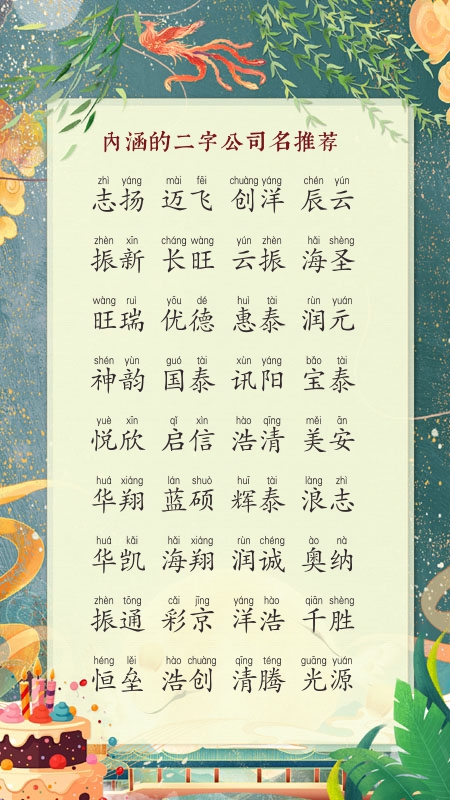 内涵的二字公司名推荐
zhì yáng mài fēi chuàng yáng chén yún
志扬 迈飞 创洋 辰云
zhèn xīn cháng wàng yún zhèn hǎi shèng
振新 长旺 云振 海圣
wàng ruì yōu dé huì tài rùn yuán
旺瑞 优德 惠泰 润元
shén yùn guó tài xùn yáng bǎo tài
神韵 国泰 讯阳 宝泰
yuè xīn qǐ xìn hào qīng měi ān
悦欣 启信 浩清 美安
huá xiáng lán shuò huī tài làng zhì
华翔 蓝硕 辉泰 浪志
huá kǎi hǎi xiáng rùn chéng ào nà
华凯 海翔 润诚 奥纳
zhèn tōng cǎi jīng yáng hào qiān shèng
振通 彩京 洋浩 千胜
héng lěi hào chuàng qīng téng guāng yuán
恒垒 浩创 清腾 光源